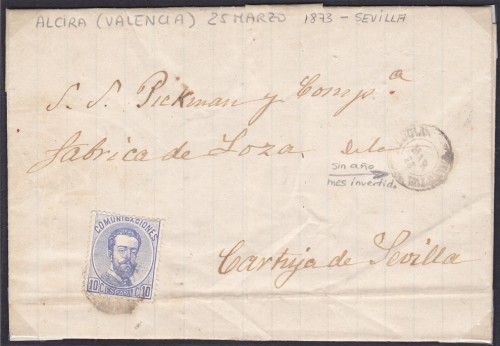 ALCIRA (VALENCIA) 25 MARZO 1873 - SEVILLA
S. S. Pickman y Comp.ª
fabrica de Loza. dela
sin año
mes invertido
COMUNICACIONES
10 C. 10
Cartuja de Sevilla